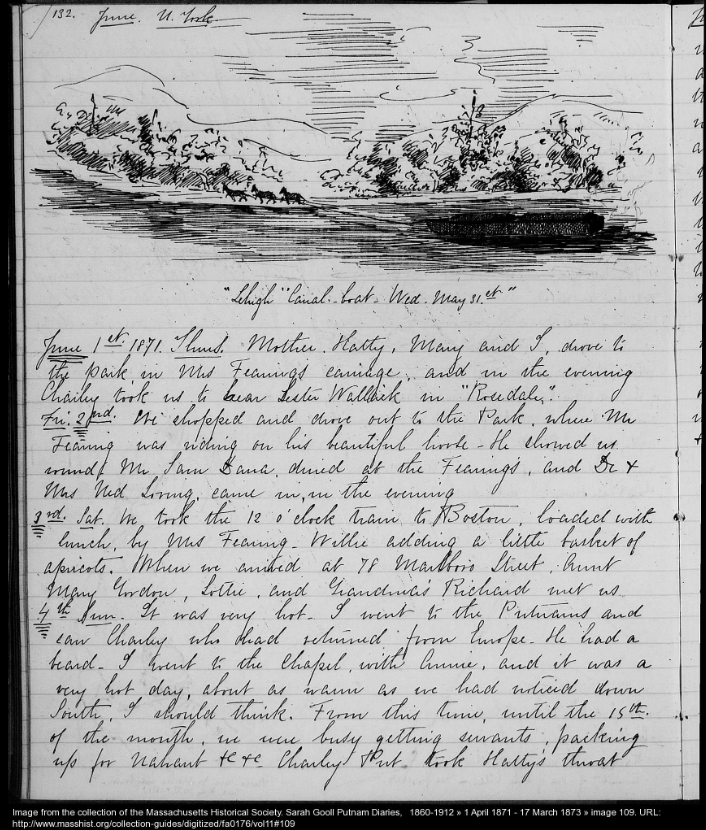 132. June. N. York
"Lehigh" Canal-boat- Wed. May 31.st"
June 1st. 1871. Thurs. Mother, Hatty, Mary and I, drove to
the park in Mrs Fearings carriage, and in the evening
Charley took us to hear Lester Wallack in "Rosedale".
Fri. 2nd. We shopped and drove out to the Park, where Mr
Fearing was riding on his beautiful horse- He showed us
round. Mr. Sam Dana, dined at the Fearing's, and Dr &
Mrs Ned Loring, came in, in the evening
3rd. Sat. We took the 12 o'clock train to Boston, loaded with
lunch, by Mrs Fearing- Willie adding a little basket of
apricots. When we arrived at 78 Marlboro Street, Aunt
Mary Gordon, Lottie, and Grandmas Richard met us.
4th Sun. It was very hot- I went to the Putnams and
saw Charley who had returned from Europe- He had a
beard- I went to the Chapel, with Annie, and it was a
very hot day, about as warm as we had noticed down
South, I should think. From this time, until the 15th.
of the month, we were busy getting servants, packing
up for Nahant &c &c. Charley Put. took Hatty's throat
Image from the collection of the Massachusetts Historical Society. Sarah Gooll Putnam Diaries, 1860-1912 » 1 April 1871 - 17 March 1873 » image 109. URL:
http://www.masshist.org/collection-guides/digitized/fa0176/vol11#109